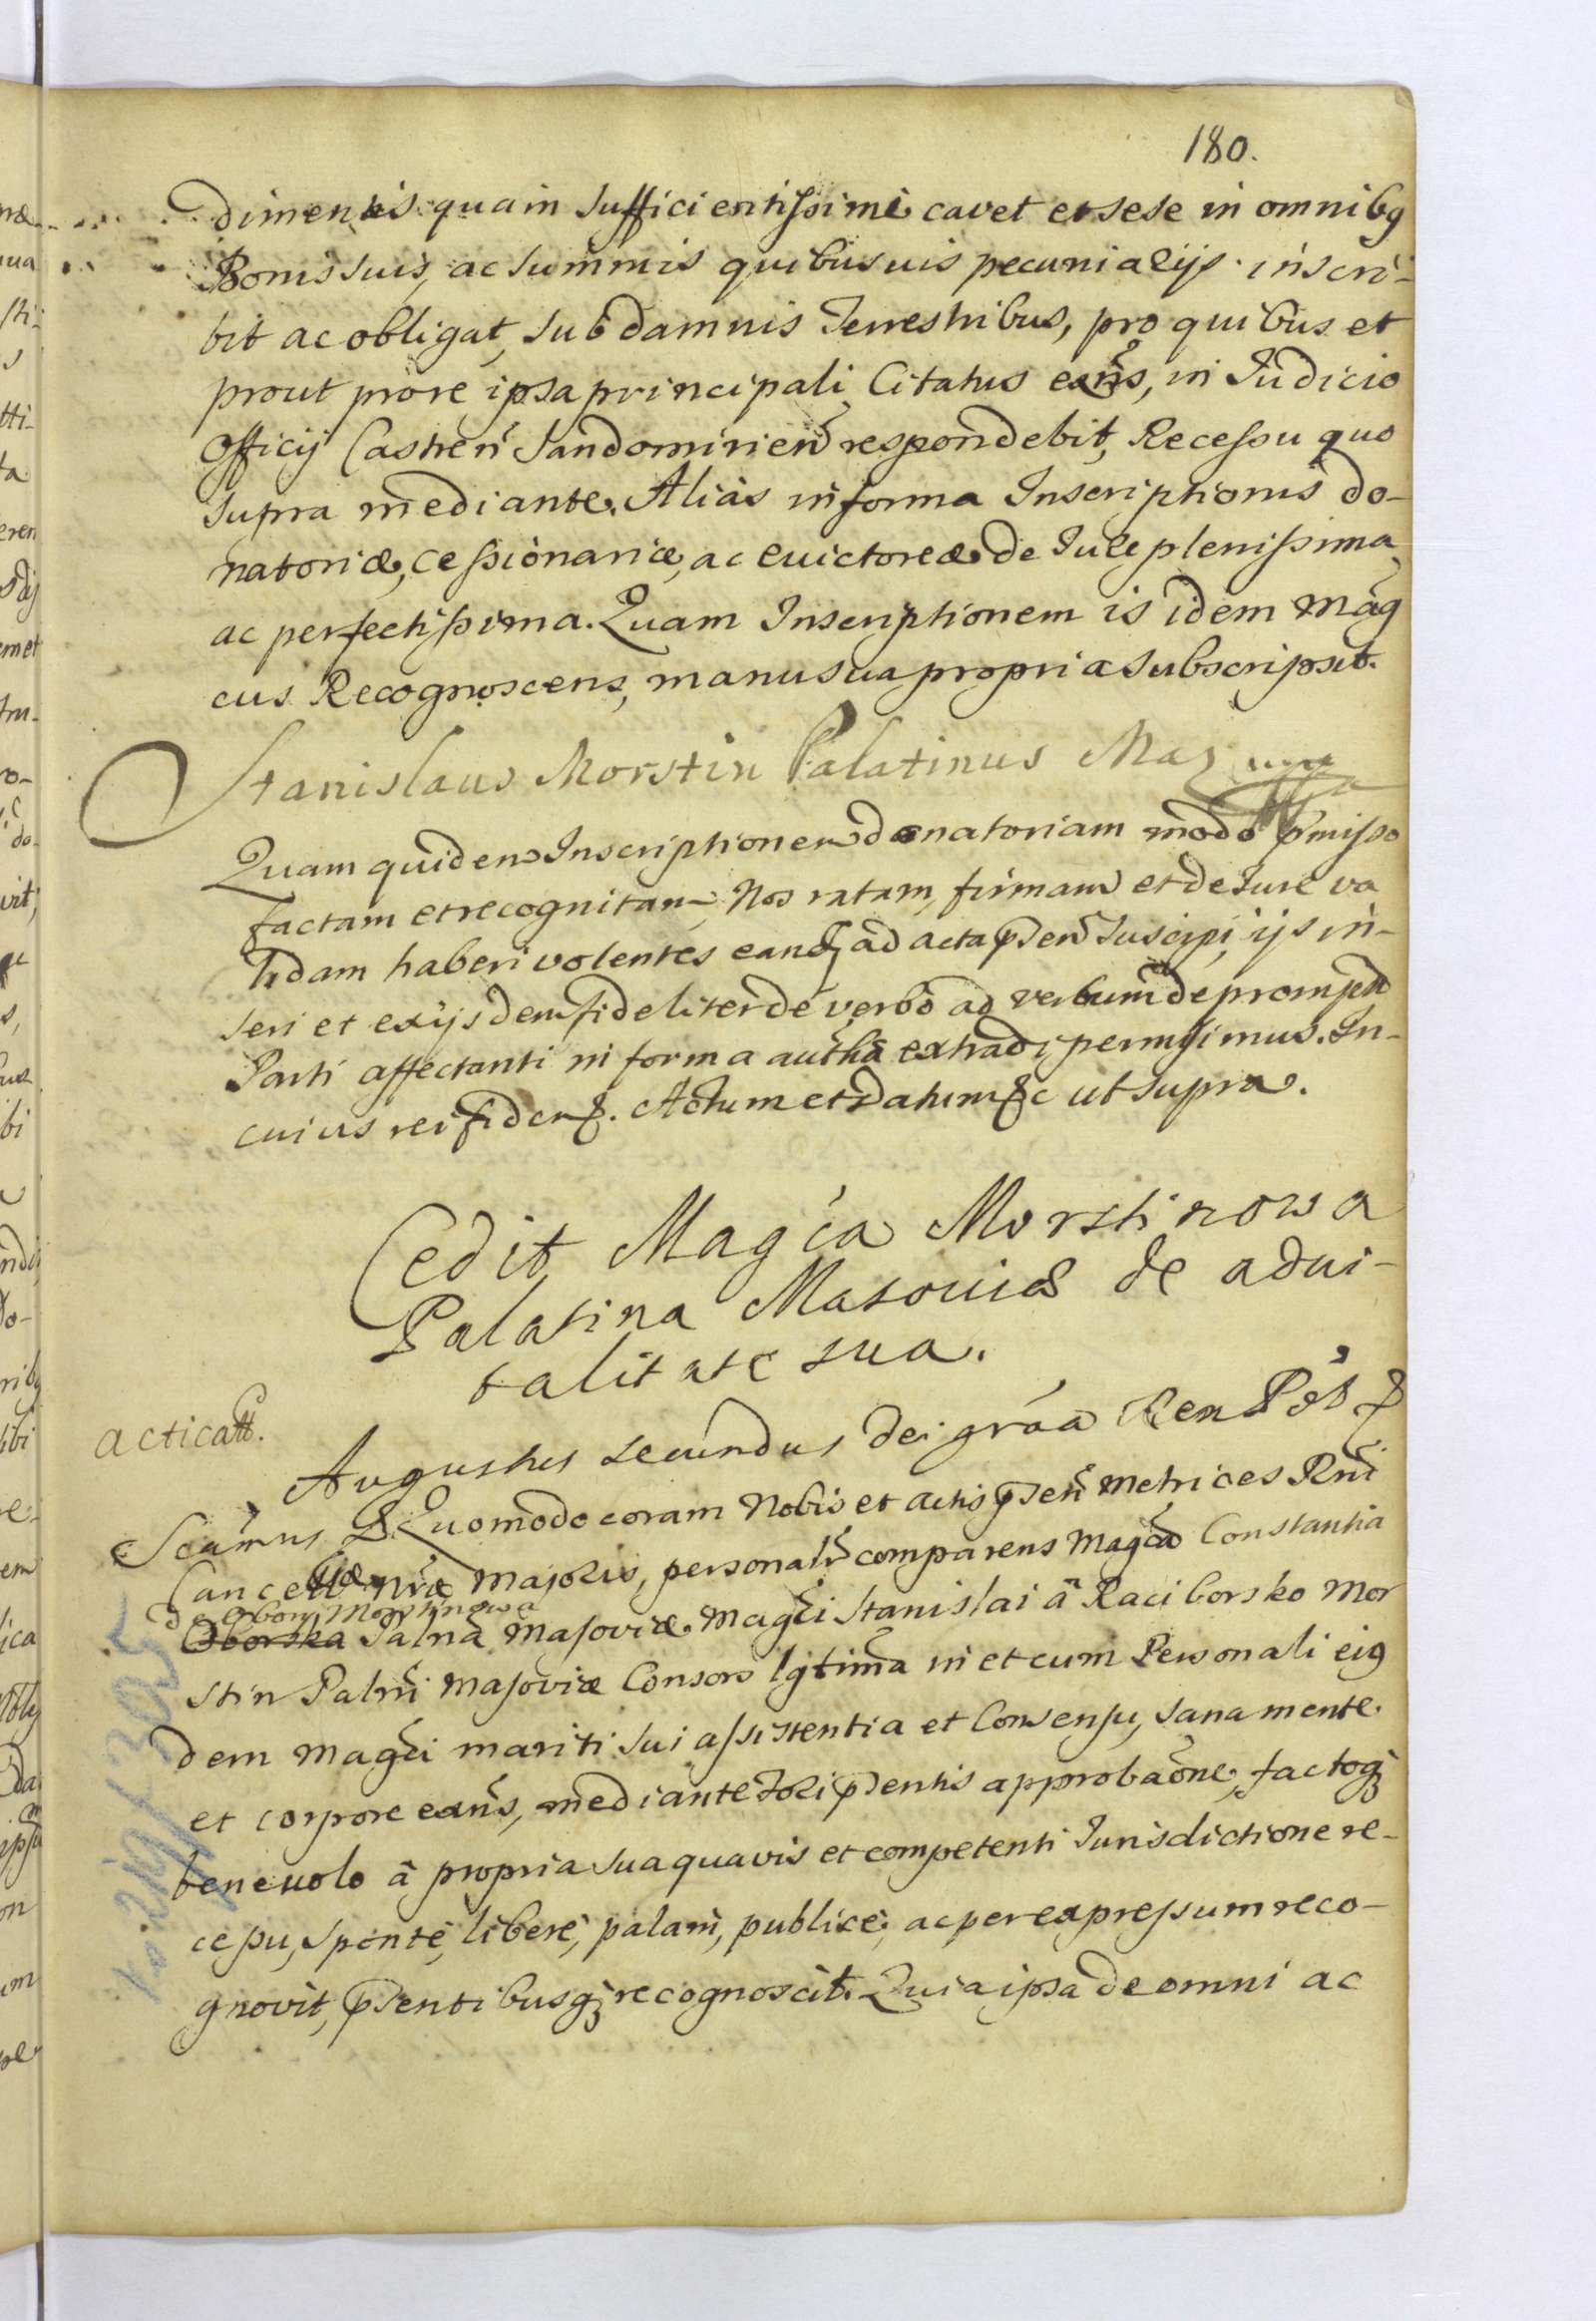 180.
dimentis quam sufficientissime cavet et sese in omnibq
Bonis suis, ac summis quibusvis pecunialijs inscri-
bit ac obligat, sub damnis Terrestribus, pro quibus et
prout prore ipsa principali Citatus exñs, in Judicio
Officij Castren Sandomirien respondebit, Recessu quo
supra mediante. Alias in forma Inscriptionis do-
natoriæ, cessionariæ, ac evictoreæ de Jure plenissima,
ac perfectissima. Quam Inscriptionem is idem Mag
cus Recognoscens, manu sua propria subscripsit.
Stanislaus Morstin Palatinus Maz
Quam quidem Inscriptionem donatoriam modo pmisso
factam et recognitam, Nos ratam, firmam et de Jure va
lidam haberi volentes eandq ad acta psen suscipi, ijs in-
seri et exijsdem fideliter de verbo ad verbum deprompt
Parti affectanti in forma autha extradi permisimus. In-
cuius rei fidem &. Actum et Datum &c ut supra.
Cedit Magca Morstinowa
Palatina Masoviæ de advi-
talitate sua.
acticatt.
Augustus secundus Dei gráa Rex Pol &
Scamus & Quomodo coram Nobis et actis psen Metrices Rni
Cancell nræ Majoris, personalr comparens Magca Constantia
de Obory Morstinowa
Oborska Palna Masoviæ Magci Stanislai â Raciborsko Mor
stin Palni Masoviæ Consors lgtima in et cum Personali eiq
dem Magci mariti sui assistentia et Consensu, sana mente
et corpore exñs, mediante Fori psentis approbaone, factoq
benevolo â propria sua quavis et competenti Jurisdictione re-
cessu, sponte, libere, palam, publice, ac per expressum reco-
gnovit, psentibusq recognoscit. Quia ipsa de omni ac